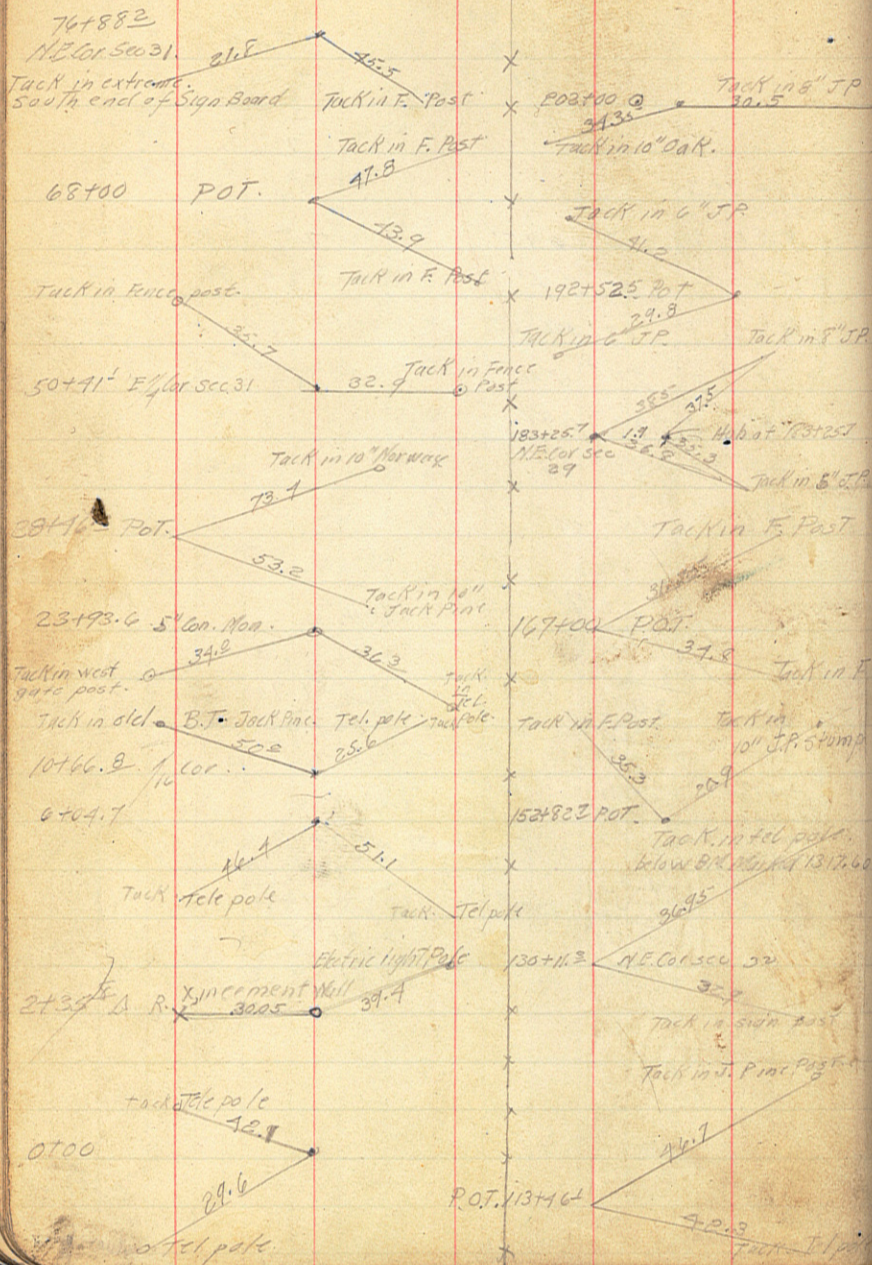 76+88²
N.E. Cor. Sec 31.
21.8
45.5
Tack in extreme
South end of Sign Board
Tack in F. Post
Tack in F. Post
47.8
68+00 P.O.T.
43.9
Tack in F. Post
Tack in Fence post.
35.7
50+41¹ E¼ Cor sec. 31
32.9
Tack in Fence
Post
Tack in 10" Norway
73.4
P.O.T.
53.2
Tack in 10"
Jack Pine
23+93.6 5" Con. Mon.
34.8
36.3
Tack in west
gate post.
Tack
in
Tel.
Pole.
Tack in old B.T. Jack Pine.
Tel. pole Tack
25.6
10+66.8 1/16 Cor.
6+04.7
46.4
51.1
Tack Tele pole
Tack Tel pole
Electric light Pole
2+35 Δ R. X, in cement Wall
30.05
39.4
tack Tele pole
42.1
0+00
29.6
Tel pole
Tack in 8" J.P
203+00
30.5
34.35
Tack in 10" Oak.
Tack in 6" J.P.
41.2
192+52.5 Pot
29.8
Tack in 6" J.P.
Tack in 8" J.P.
38.5
37.5
183+25.7
1.9
Hub at 183+25
N.E. Cor sec
29
Tack in 5" J.P.
Tack in F. Post
31
167+00 P.O.T.
34.8
Tack in F.
Tack in F. Post
Tack in
10" J.P. Stump
35.3
20.9
152+82⁷ P.O.T.
Tack in tel pole
below B.M. Marked 1317.60
36.95
130+11.3 N.E. Cor sec 22
Tack in sign post
Tack in J. Pine Post
46.7
P.O.T. 113+46¹
42.3
Tack Tel pole